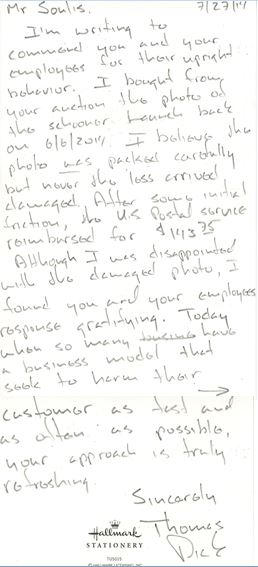 Mr Soulis. 7/27/14
I'm writing to
commend you and your
employees for their upright
behavior. I bought from
your auction the photo of
the schooner Launch back
on 6/6/2014. I believe the
photo was packed carefully
but never the less arrived
damaged. After some initial
friction, the U.S Postal service
reimbursed for $143.75
Although I was disappointed
with the damaged photo, I
found you and your employees
response gratifying. Today
when so many have
a business model that
seek to harm their
customer as fast and
as often as possible,
your approach is truly
refreshing.
Sincerely
Thomas
Dick
Hallmark
STATIONERY